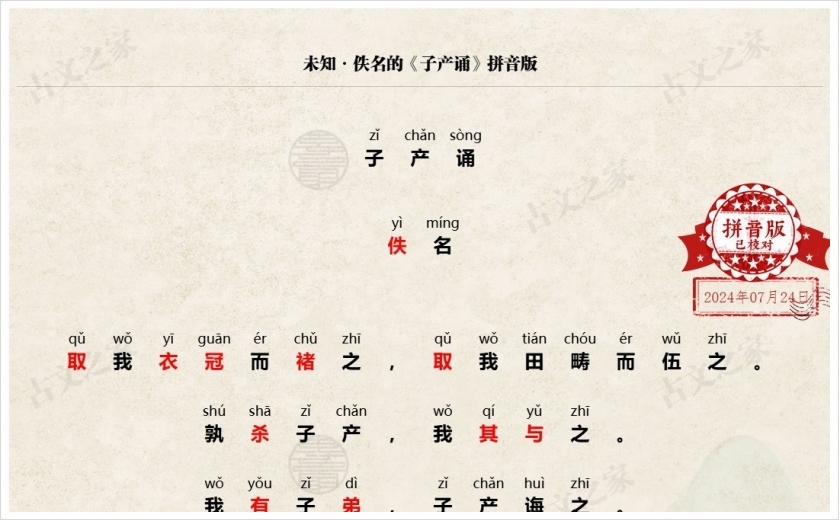 未知·佚名的《子产诵》拼音版
zǐ chǎn sòng
子产诵
yì míng
佚名
拼音版
已校对
2024年07月24日
qǔ wǒ yī guān ér chǔ zhī qǔ wǒ tián chóu ér wǔ zhī
取我衣冠而褚之，取我田畴而伍之。
shú shā zǐ chǎn wǒ qí yǔ zhī
孰杀子产，我其与之。
wǒ yǒu zǐ dì zǐ chǎn huì zhī
我有子弟，子产诲之。
古文之家
古文之家
古文之家
古文之家
古文之家
古文之家